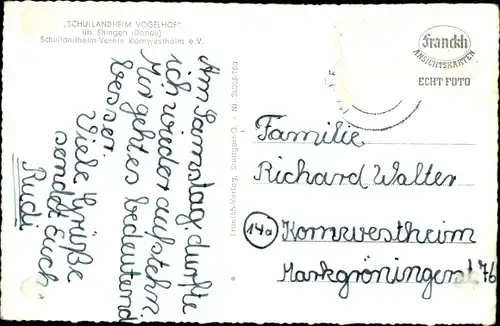 „SCHULLANDHEIM VOGELHOF"
üb. Ehingen (Donau)
Schullandheim-Verein Kornwestheim e.V.
Am Samstag, durfte
ich wieder aufstehn.
Mir geht es bedeutend
besser.
Viele Grüße
sendet Euch
Rudi
Franckh-Verlag, Stuttgart O. - Nr.
Franckh
ANSICHTSKARTEN
ECHT FOTO
Familie
Richard Walter
14a Kornwestheim
Markgröningerst. 76